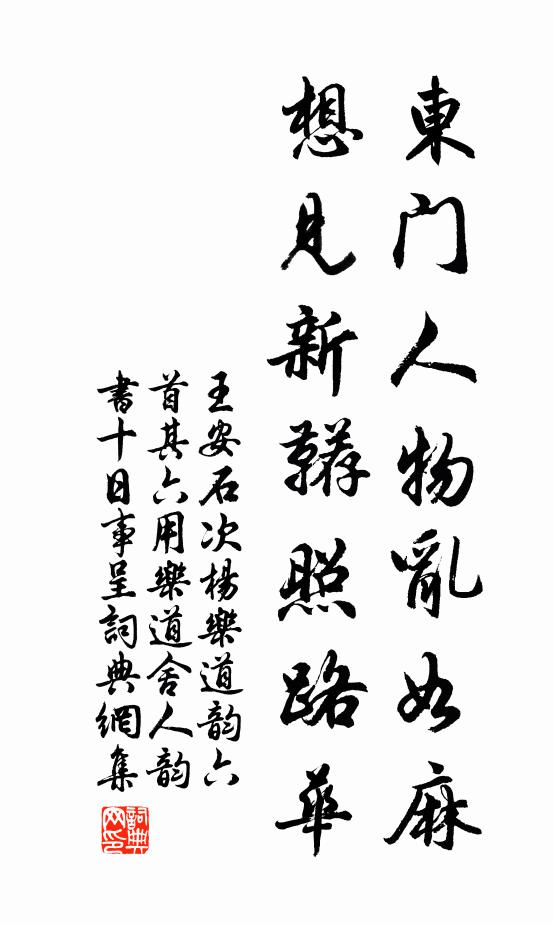 東門人物亂如麻
想見新韉照路華
王安石次楊樂道韵六
首其六用樂道舍人韵
書十日事呈詞典網集
詞典
网印